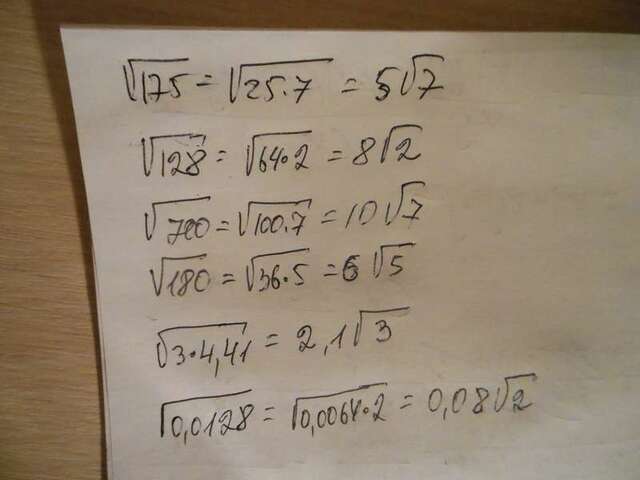 √175 = √25·7 = 5√7
√128 = √64·2 = 8√2
√700 = √100·7 = 10√7
√180 = √36·5 = 6√5
√3·4,41 = 2,1√3
√0,0128 = √0,0064·2 = 0,08√2